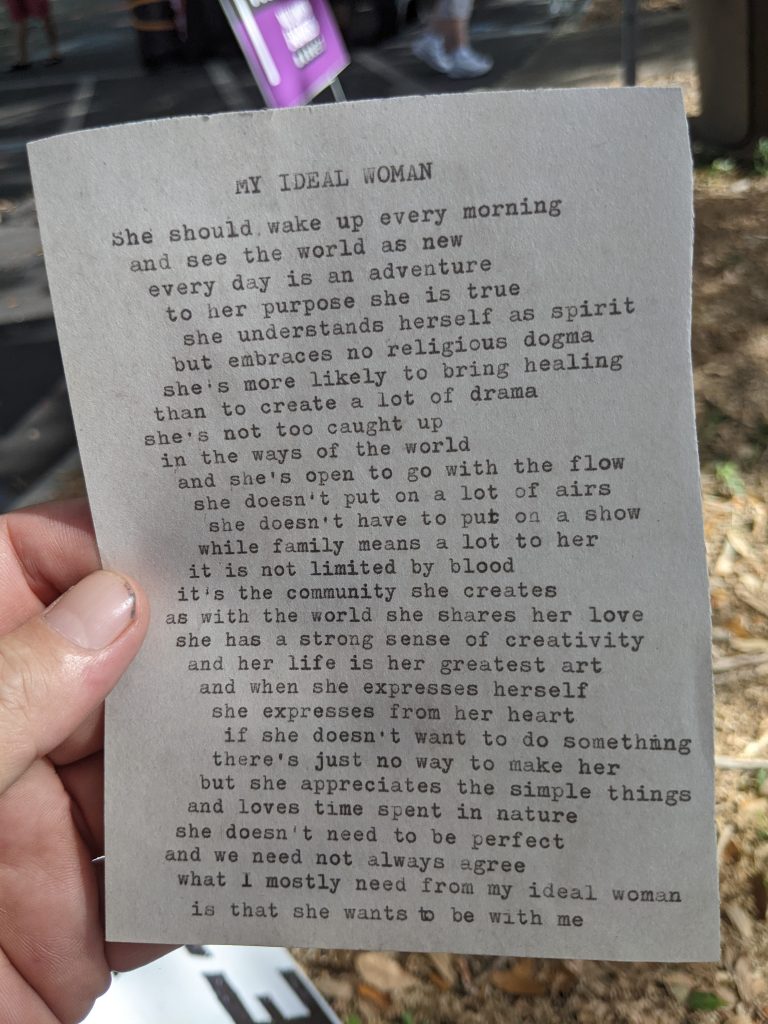 MY IDEAL WOMAN
She should wake up every morning
and see the world as new
every day is an adventure
to her purpose she is true
she understands herself as spirit
but embraces no religious dogma
she's more likely to bring healing
than to create a lot of drama
she's not too caught up
in the ways of the world
and she's open to go with the flow
she doesn't put on a lot of airs
she doesn't have to put on a show
while family means a lot to her
it is not limited by blood
it's the community she creates
as with the world she shares her love
she has a strong sense of creativity
and her life is her greatest art
and when she expresses herself
she expresses from her heart
if she doesn't want to do something
there's just no way to make her
but she appreciates the simple things
and loves time spent in nature
she doesn't need to be perfect
and we need not always agree
what I mostly need from my ideal woman
is that she wants to be with me